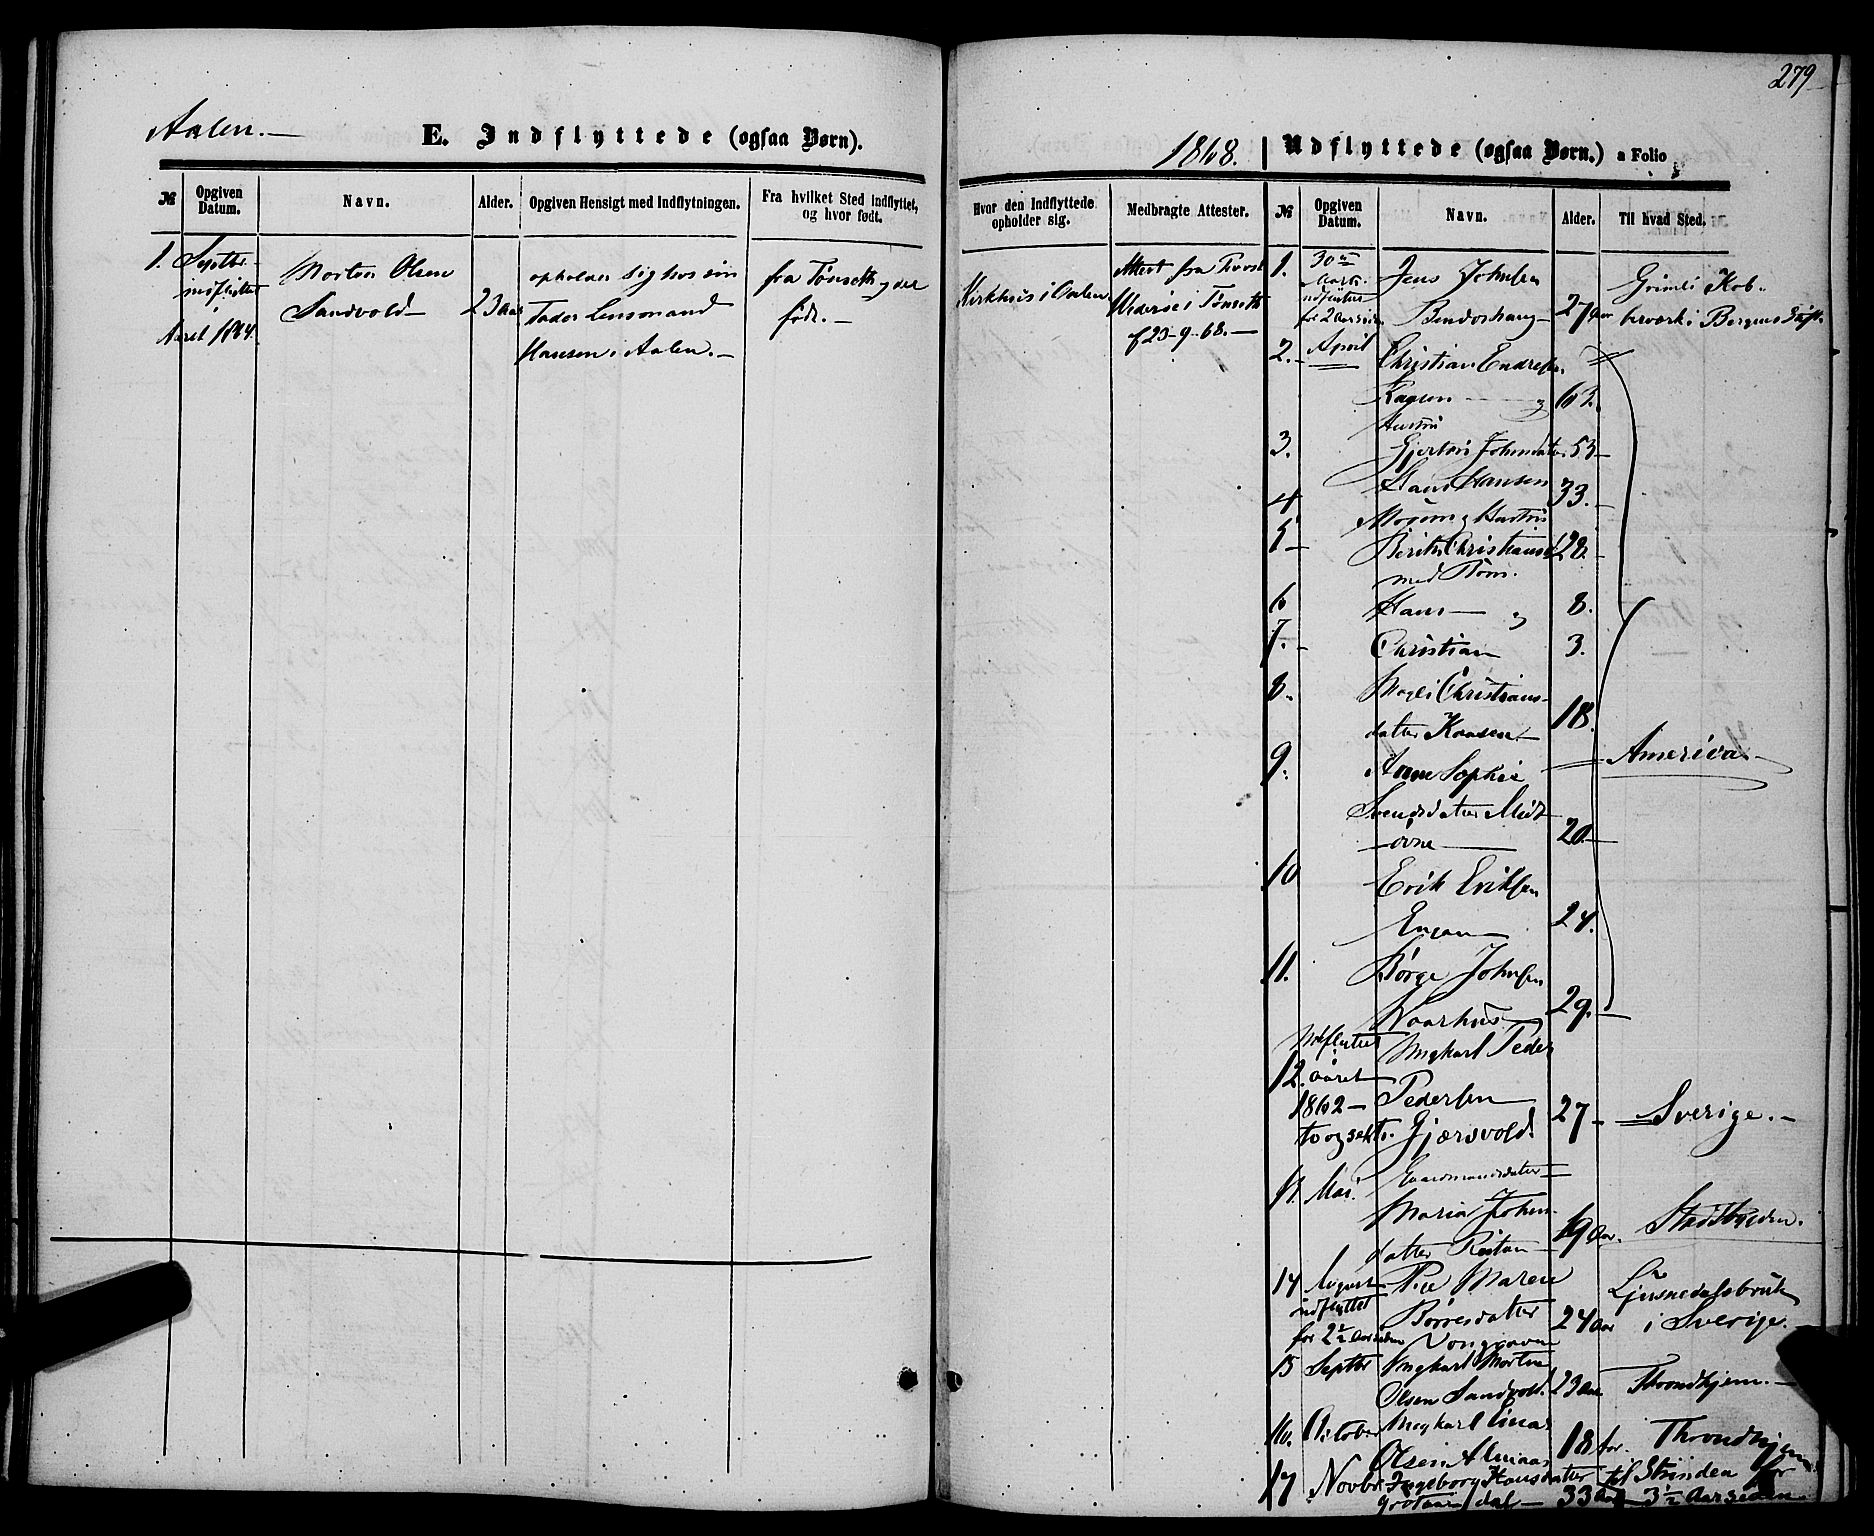 279
Aalen.—
E. Indflyttede (ogsaa Børn).
1868.
Udflyttede (ogsaa Børn.) a Folio
№
Opgiven Datum.
Navn.
Alder.
Opgiven Hensigt med Indflytningen.
Fra hvilket Sted indflyttet, og hvor født.
Hvor den Indflyttede opholder sig.
Medbragte Attester.
№
Opgiven Datum.
Navn.
Alder.
Til hvad Sted.
1. Septbr. Morten Olsen opholder sig hos sin fra Tønseth og der
indflyttet Sandvold— 23 aar Fader Lensmand født.—
Aaret 1864. Hansen i Aalen.—
Kirkhus i Aalen
Attest fra Provst
i Tønseth
f 23-9-68.—
1. 30te Jens Johnsen
Marts
27 aar
for 2 Aar siden
i Bergens Stift.
2.- April Christian Endresen
63.
Hustru
3. Johnsdatter 53-
4 Hans Hansen 33.-
Hustru
5- Berith Christiansd 28.-
med Børn.
6 Hans— og 8.
7.- Christian 3.
8. Christians-
datter Kaasen.— 18.
9. Anne Sophie America.-
Svendsdatter Midt-
øvne— 20.-
10 Erik Eriksen
Engan— 24.
11. Børge Johnsen
29.-
Udflyttet Ungkarl Peder
12. aaret
1862- Pedersen 27- Sverige.-
to og sexti. Gjærsvold.
Mai. Gaardmandsdatter
Maria John-
datter 19 Aar.
14 August Pige Maren
udflyttet Børresdatter 24 aar i Sverige.
for 2½ Aar siden
15 Septbr Ungkarl Morten
Olsen Sandvold. 23 aar Throndhjem.-
16. October Ungkarl Einar
Olsen Almaas 18 Aar. Throndhjem
17 Novbr Ingeborg Hansdatter til Strinden for
33 aar 3½ Aar siden